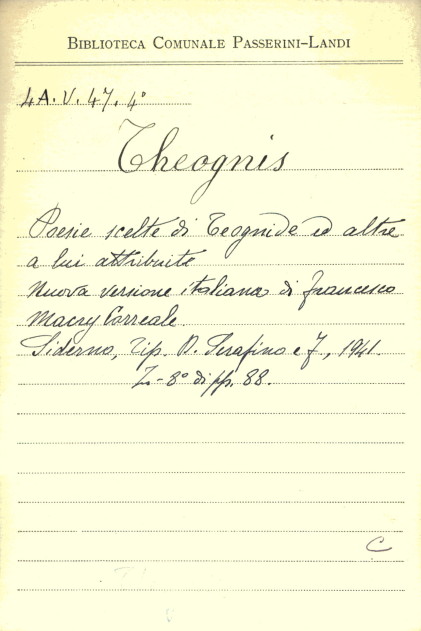 BIBLIOTECA COMUNALE PASSERINI-LANDI
4A.V.47.4°
Theognis
Poesie scelte di Teognide ed altre
a lui attribuite
Nuova versione italiana di Francesco
Macry Correale.
Siderno, Tip. D. Serafino e F., 1941.
in-8° di pp. 88.
C